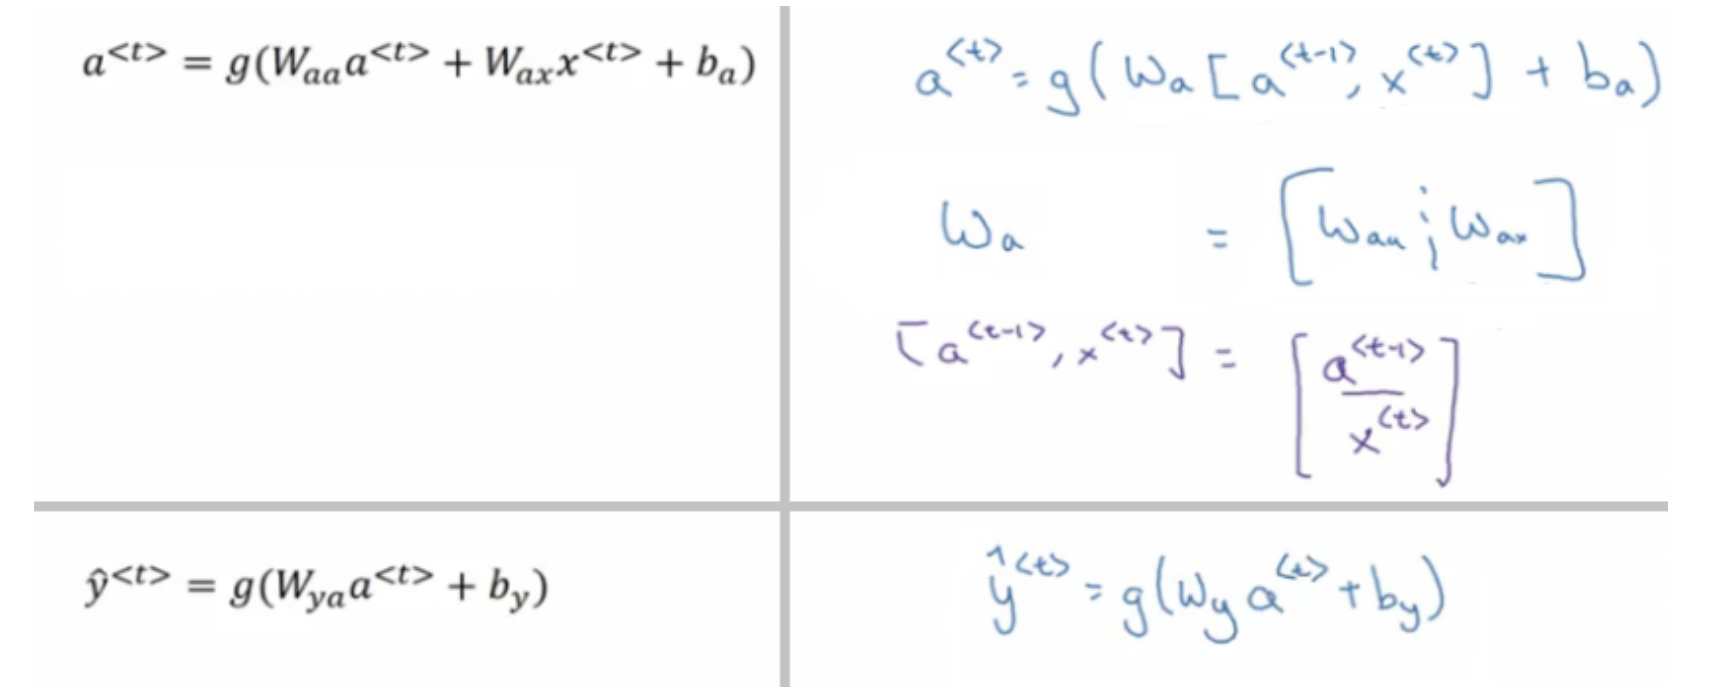 a<t> = g(W_aa a<t> + W_ax x<t> + b_a)
a<t> = g(W_a [a<t-1>, x<t>] + b_a)
W_a = [W_aa ; W_ax]
[a<t-1>, x<t>] = [a<t-1> / x<t>]
ŷ<t> = g(W_ya a<t> + b_y)
ŷ<t> = g(W_y a<t> + b_y)